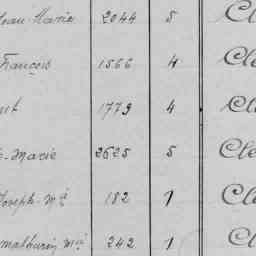 Jean Marie 2044 5 Cl
François 1566 4 Cle
1779 4 Cl
Marie 2625 5 Cle
Joseph Mie 182 1 Cle
Mathurin Mie 242 1 Cl